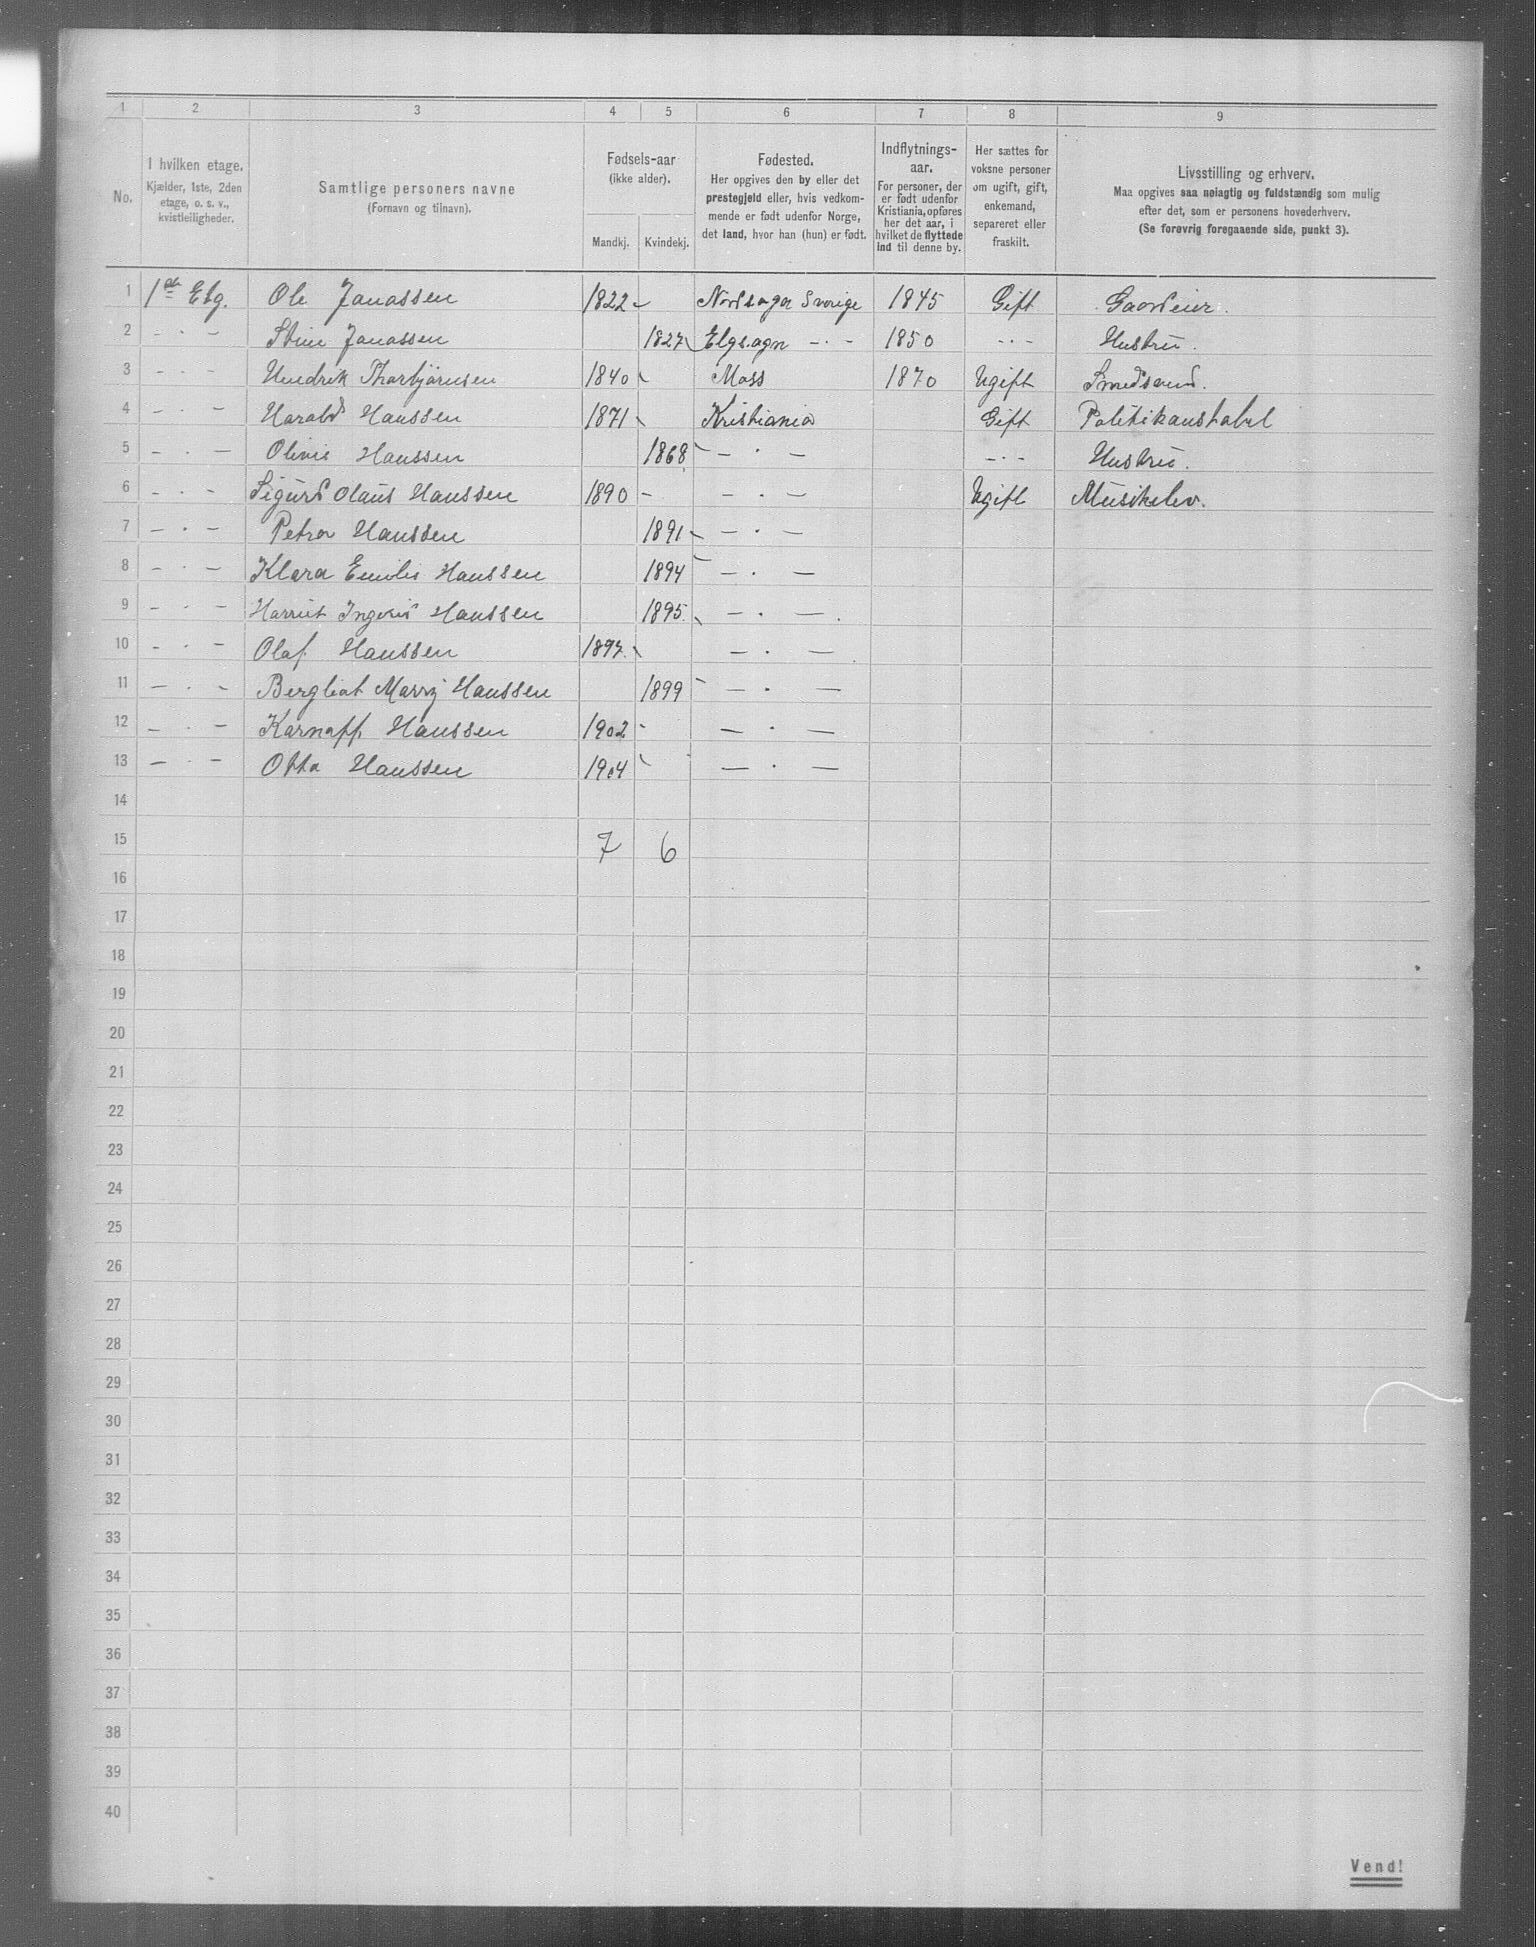 1 2 3 4 5 6 7 8 9
No.
I hvilken etage.
Kjælder, 1ste, 2den
etage, o. s. v.,
kvistleiligheder.
Samtlige personers navne
(Fornavn og tilnavn).
Fødsels-aar
(ikke alder).
Mandkj. Kvindekj.
Fødested.
Her opgives den by eller det
prestegjeld eller, hvis vedkom-
mende er født udenfor Norge,
det land, hvor han (hun) er født.
Indflytnings-
aar.
For personer, der
er født udenfor
Kristiania, opføres
her det aar, i
hvilket de flyttede
ind til denne by.
Her sættes for
voksne personer
om ugift, gift,
enkemand,
separeret eller
fraskilt.
Livsstilling og erhverv.
Maa opgives saa nøiagtig og fuldstændig som mulig
efter det, som er personens hovederhverv.
(Se forøvrig foregaaende side, punkt 3).
1 1ste Etg. Ole Janassen 1822 Sverige 1845 Gift Gaardeier.
2 – · – Stine Janassen 1827 – · – 1850 – · – Hustru.
3 – · – Hendrik Thorbjørnsen 1840 Moss 1870 Ugift Smedsvend.
4 – · – Harald Hanssen 1871 Kristiania Gift Politikonstabel
5 – · – Olivie Hanssen 1868 – · – – · – Hustru.
6 – · – Sigurd Olaus Hanssen 1890 – · – Ugift Musikelev.
7 – · – Petra Hanssen 1891 – · –
8 – · – Klara Emilie Hanssen 1894 – · –
9 – · – Harriet Ingerid Hanssen 1895. – · –
10 – · – Olaf Hanssen 1897. – · –
11 – · – Bergliot Marry Hanssen 1899 – · –
12 – · – Hanssen 1902 – · –
13 – · – Otto Hanssen 1904 – · –
14
15 7 6
16
17
18
19
20
21
22
23
24
25
26
27
28
29
30
31
32
33
34
35
36
37
38
39
40
Vend!